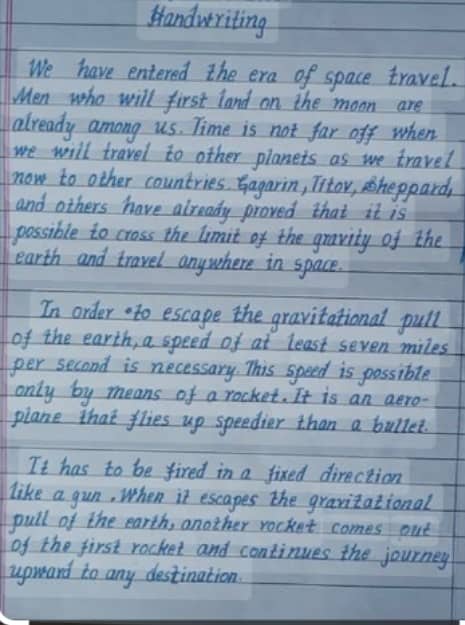 Handwriting
We have entered the era of space travel.
Men who will first land on the moon are
already among us. Time is not far off when
we will travel to other planets as we travel
now to other countries. Gagarin, Titov, Sheppard,
and others have already proved that it is
possible to cross the limit of the gravity of the
earth and travel anywhere in space.
In order to escape the gravitational pull
of the earth, a speed of at least seven miles
per second is necessary. This speed is possible
only by means of a rocket. It is an aero-
plane that flies up speedier than a bullet.
It has to be fired in a fixed direction
like a gun. When it escapes the gravitational
pull of the earth, another rocket comes out
of the first rocket and continues the journey
upward to any destination.